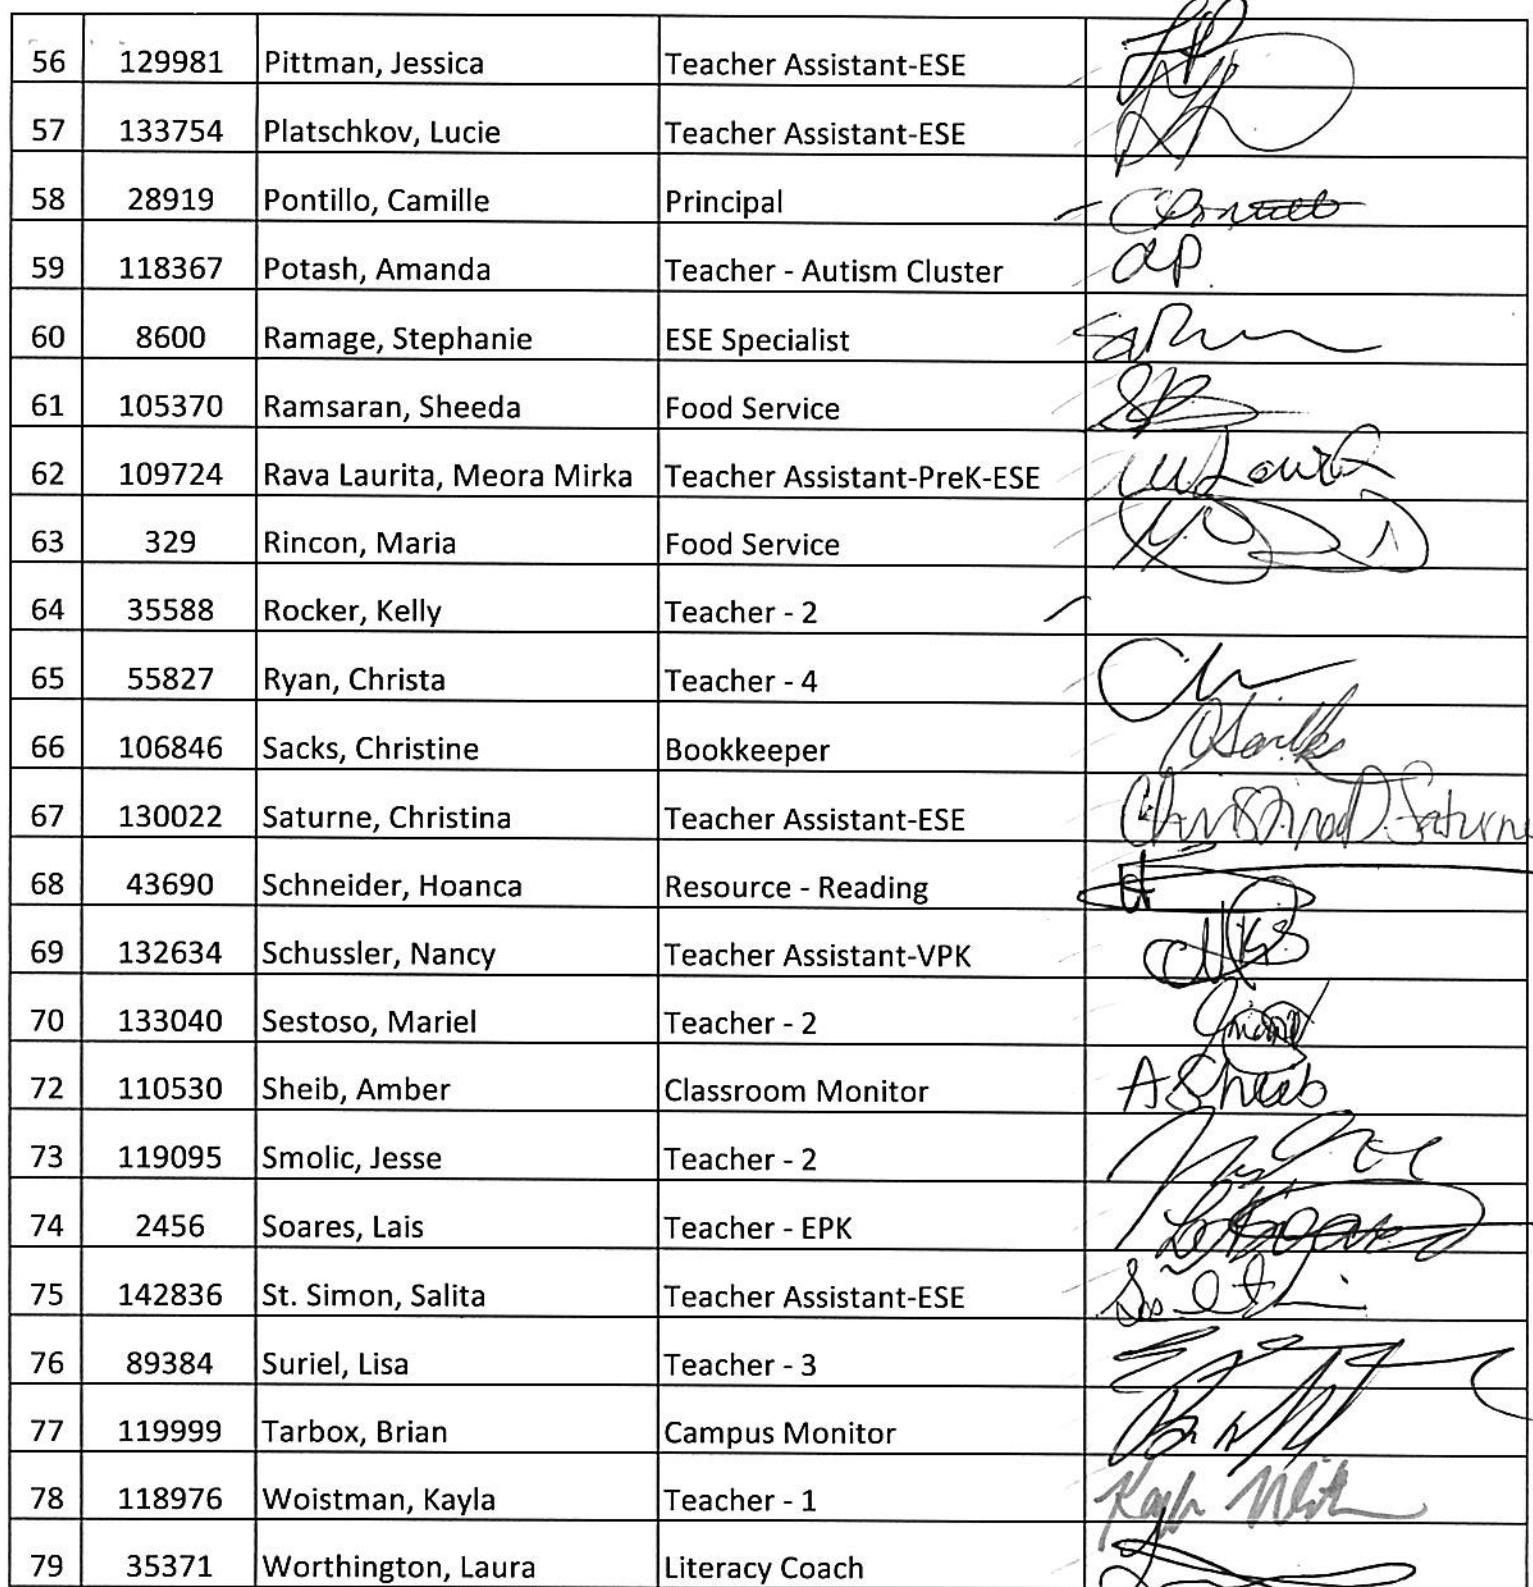 56 129981 Pittman, Jessica Teacher Assistant-ESE
57 133754 Platschkov, Lucie Teacher Assistant-ESE
58 28919 Pontillo, Camille Principal
59 118367 Potash, Amanda Teacher - Autism Cluster
60 8600 Ramage, Stephanie ESE Specialist
61 105370 Ramsaran, Sheeda Food Service
62 109724 Rava Laurita, Meora Mirka Teacher Assistant-PreK-ESE
63 329 Rincon, Maria Food Service
64 35588 Rocker, Kelly Teacher - 2
65 55827 Ryan, Christa Teacher - 4
66 106846 Sacks, Christine Bookkeeper
67 130022 Saturne, Christina Teacher Assistant-ESE
68 43690 Schneider, Hoanca Resource - Reading
69 132634 Schussler, Nancy Teacher Assistant-VPK
70 133040 Sestoso, Mariel Teacher - 2
72 110530 Sheib, Amber Classroom Monitor
73 119095 Smolic, Jesse Teacher - 2
74 2456 Soares, Lais Teacher - EPK
75 142836 St. Simon, Salita Teacher Assistant-ESE
76 89384 Suriel, Lisa Teacher - 3
77 119999 Tarbox, Brian Campus Monitor
78 118976 Woistman, Kayla Teacher - 1
79 35371 Worthington, Laura Literacy Coach